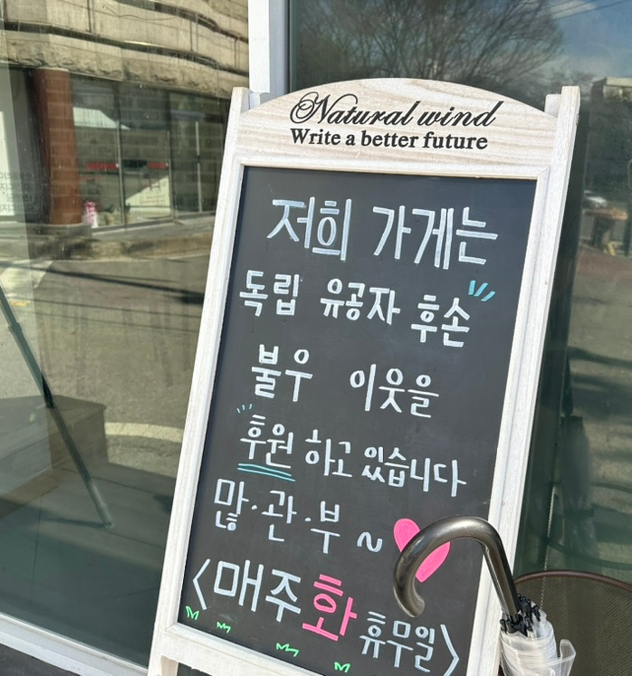 Natural wind
Write a better future
저희 가게는
독립 유공자 후손
불우 이웃을
후원 하고 있습니다
많·관·부~
<매주 화 휴무일>